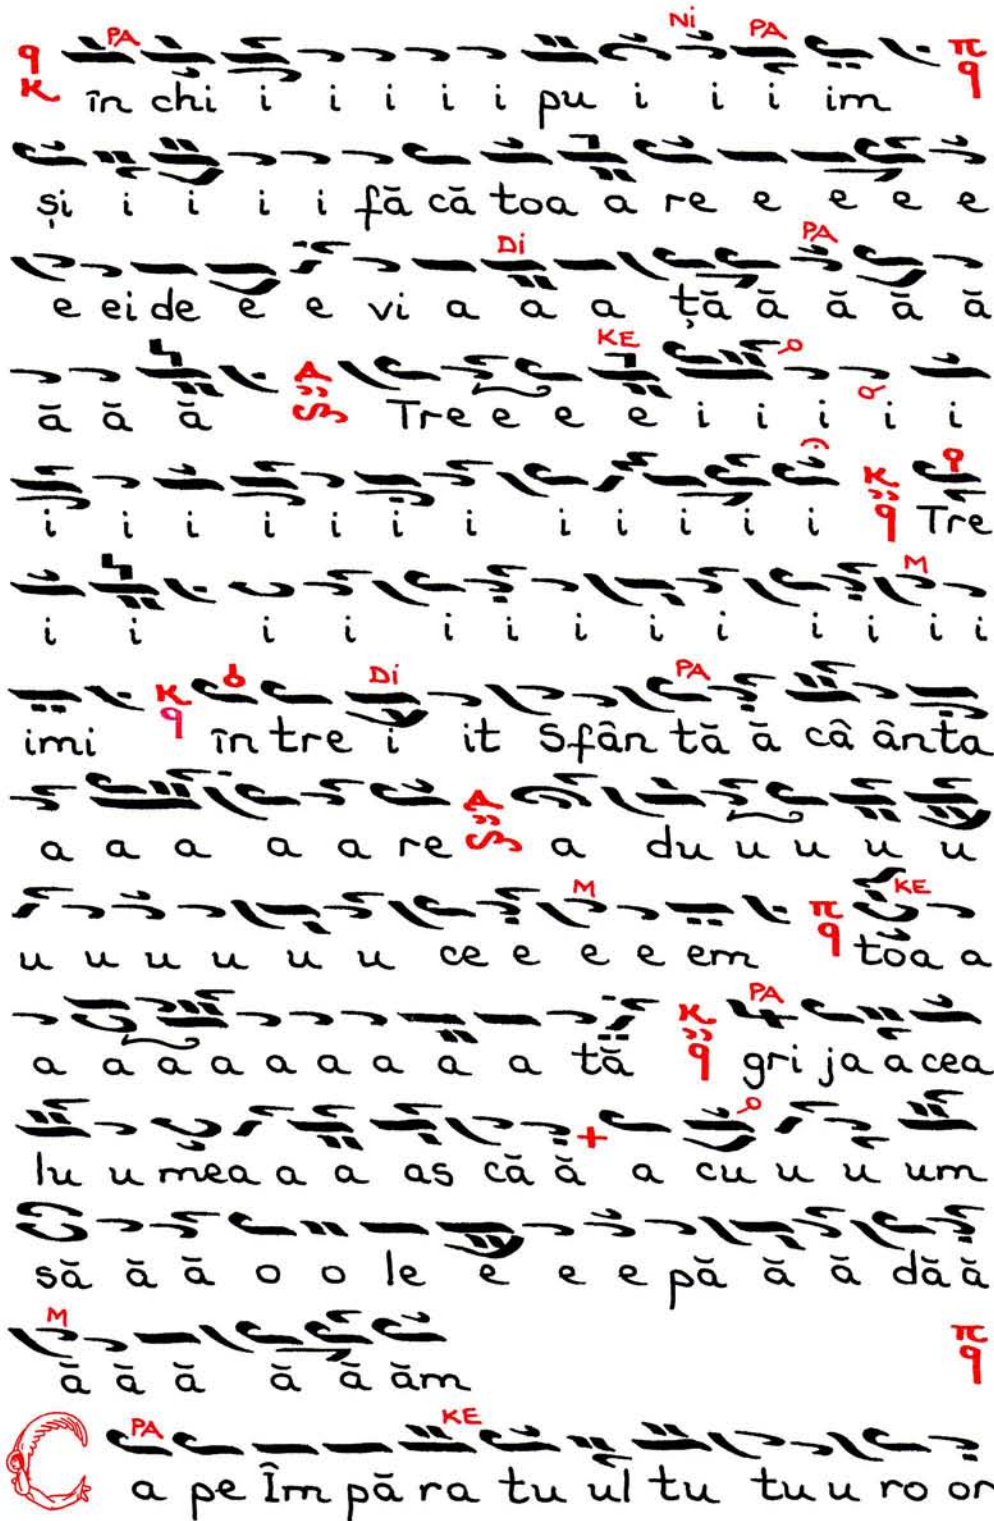 PA Ni PA
în chi i i i i i pu i i i im
și i i i i fă că toa a re e e e e
Di PA
e ei de e e vi a a a ță ă ă ă ă
KE
ă ă ă Tre e e e i i i i i
i i i i i i i i i i i i Tre
M
i i i i i i i i i i i i i
Di PA
imi în tre i it Sfân tă ă câ ânta
a a a a a re a du u u u u
M KE
u u u u u u ce e e e em toa a
PA
a a a a a a a a a tă gri ja a cea
lu u mea a a as că ă a cu u u um
să ă ă o o le e e e pă ă ă dă ă
M
ă ă ă ă ă ăm
PA KE
C a pe Îm pă ra tu ul tu tu u ro or